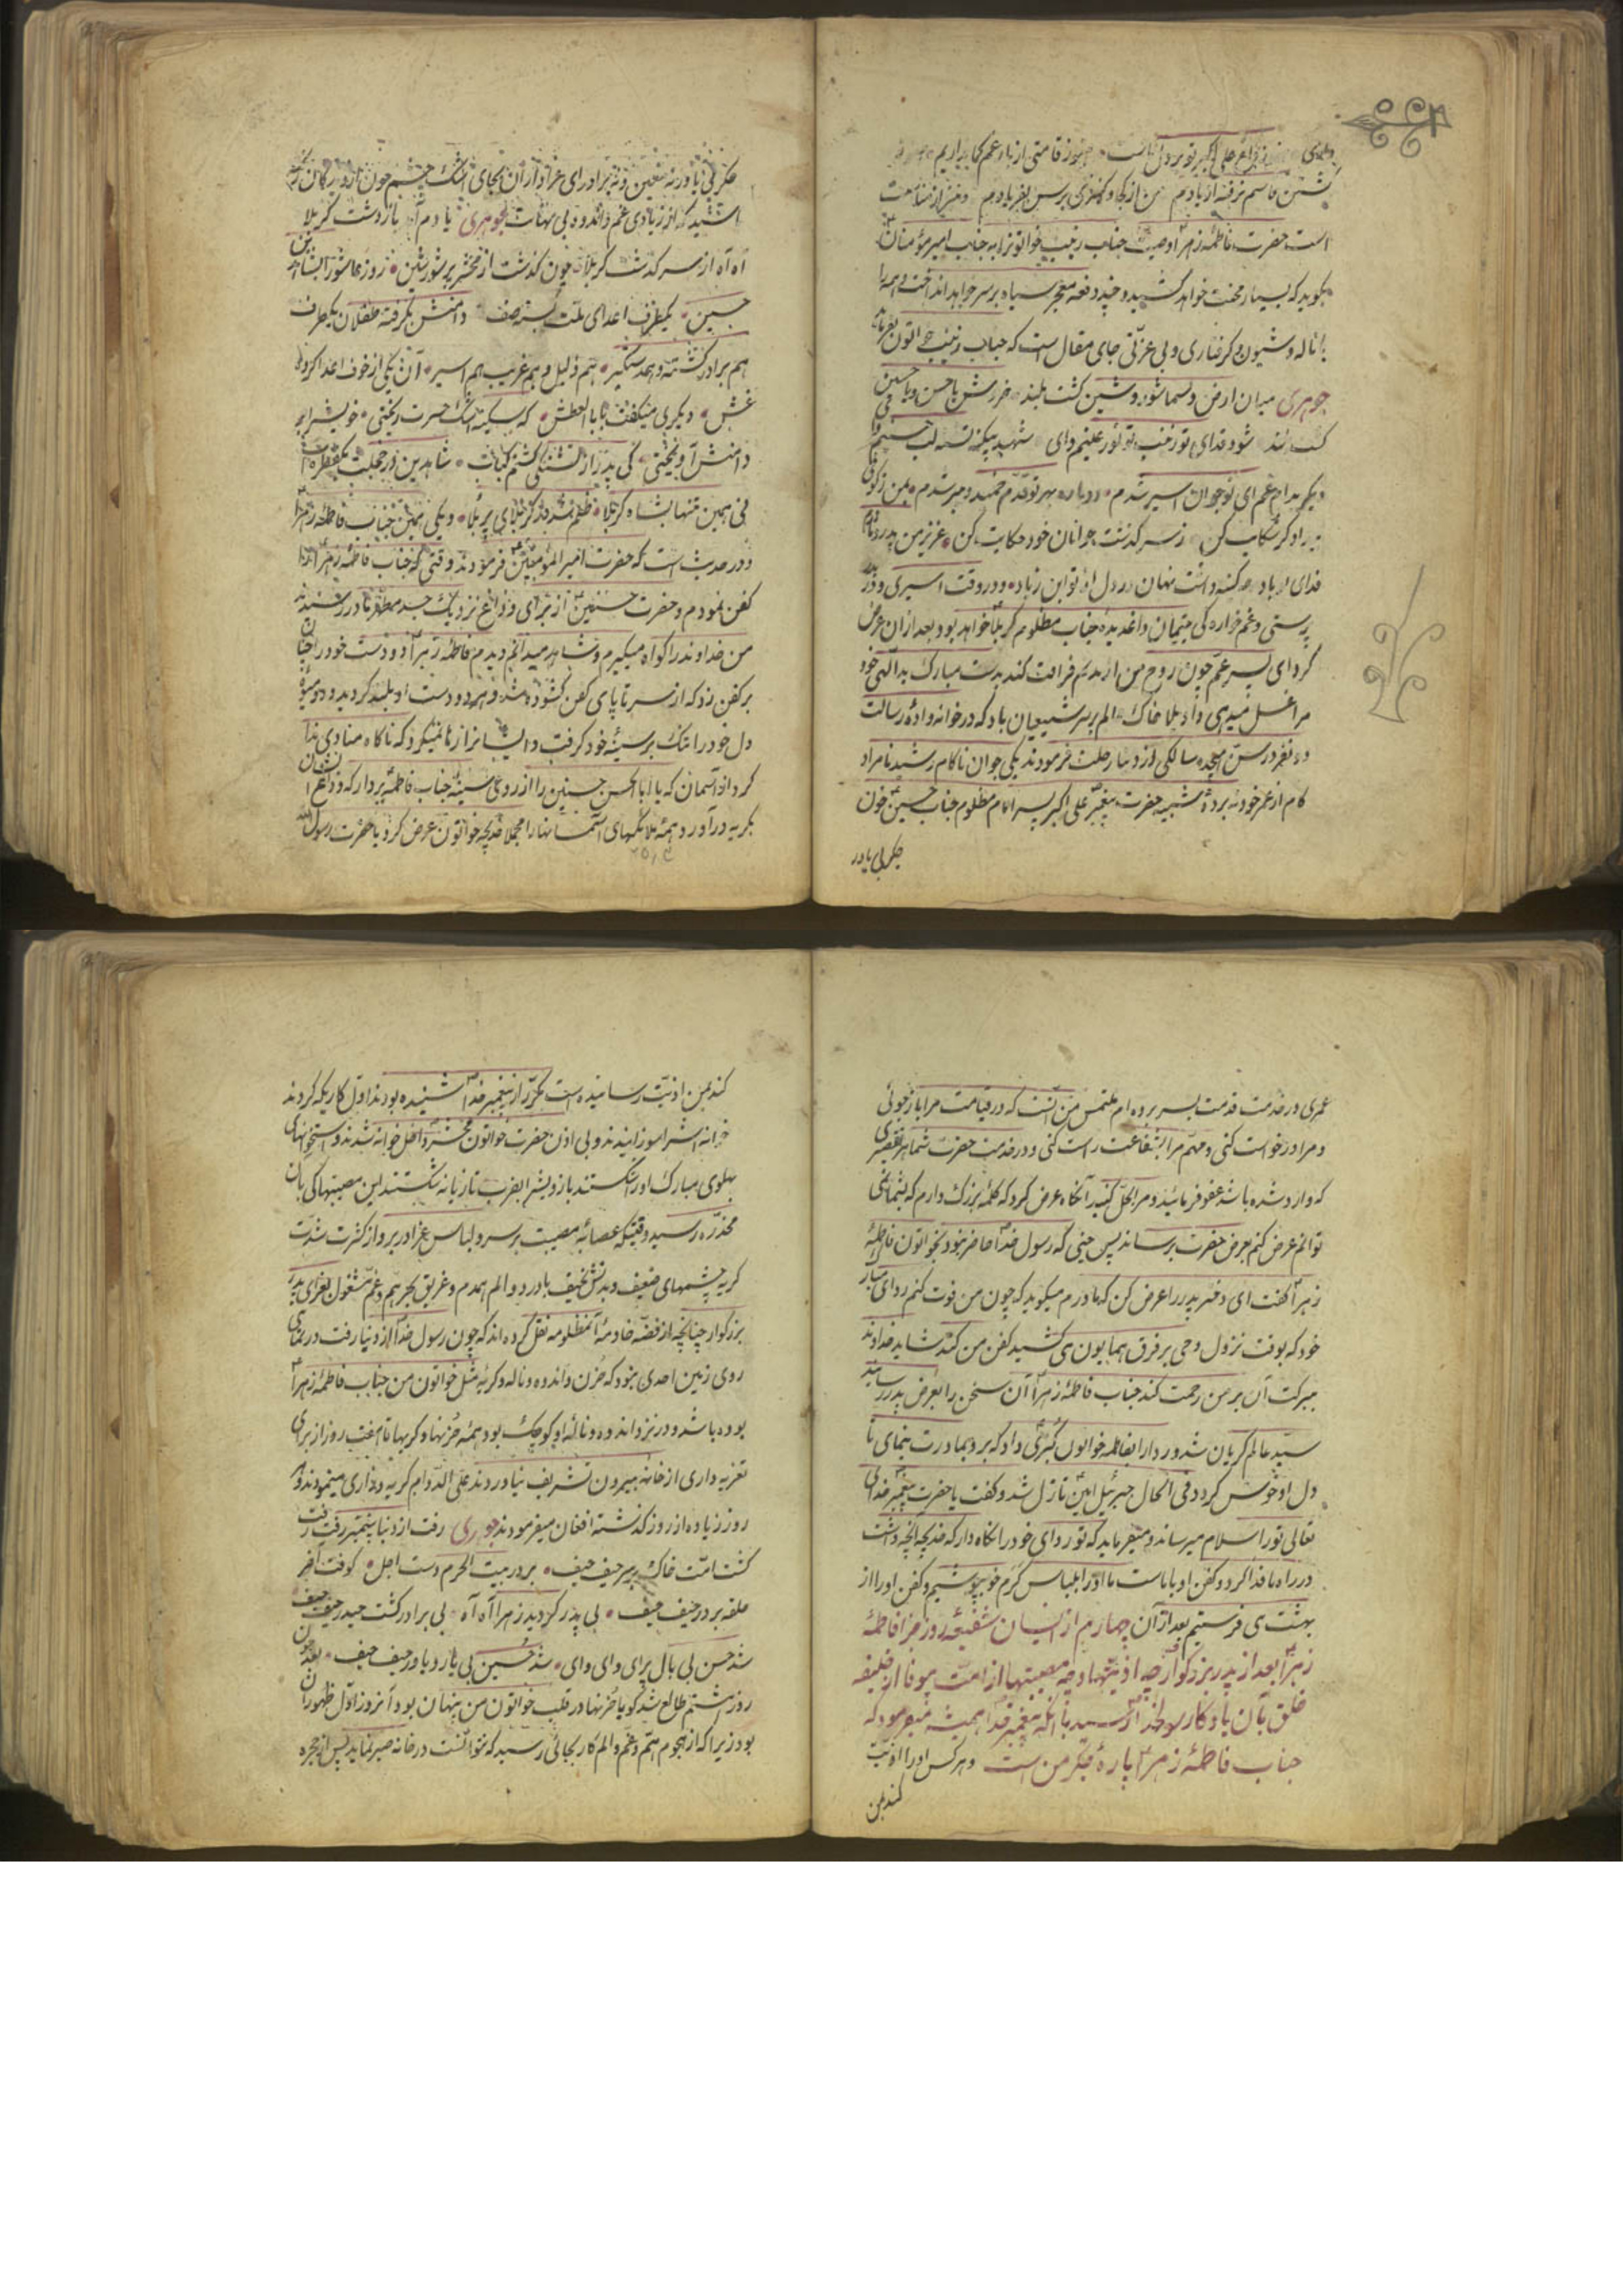 داغ علی اکبر تو بر دل ماست
کشتن قاسم نرفته از یادم من از کجا و کسی برس بفریادم
است حضرت فاطمهٔ زهرا وصیت جناب زینب خواتونرا به جناب امیر مؤمنان
بکوید که بسیار محنت خواهد کشید و چند دفعه معجر سیاه بر سر خواهد انداخت و همه را
با ناله و شیون و کرفتاری و بی عزتی جای مقال است که جناب زینب خواتون بفرماید
جوهری میدان ارض و سما شور و شین کشت بلند
شود فدای تو زینب تو نور عینم وای شهید بیکفن تشنه لب حسینم وای
دیکر بداغ غم ای نوجوان اسیر شدم دوباره بهر تو قدم خمید و پیر شدم بمن ز کوفی
ز سر کذشت جوانان خود حکایت کن عزیز من پدر و مادرم
فدای تو باد که کینه داشت نهان در دل از تو ابن زیاد و در وقت اسیری و در بدر
پرستی و غمخواره کی یتیمان داغدیدهٔ جناب مظلوم کربلا خواهد بود بعد از آن عرض
کرد ای پسر عم چون روح من از بدنم فراقت کند بدست مبارک
مرا غسل میدهی واویلا خاک الم بر سر شیعیان باد که در خوانهوادهٔ رسالت
دو نفر در سن هیجده سالکی از دنیا رحلت فرمودند یکی جوان ناکام رشید نامراد
کام از عمر خود نبردهٔ شبیه حضرت پیغمبر علی اکبر پسر امام مظلوم جناب حسین چون
جکر بی یاور
جکر بی یاور نه معین و نه برادرای عزاداران بجای اشک چشم خون از دیدکان
باشید که از زیادی غم و اندوه و بی نهایت جوهری یادم آمد باز دشت کربلا
آه آه از سر کذشت کربلا چون کذشت از محشر پر شور شین روز عاشورا بشاه دین
حسین یکطرف اعدای ملت بسته صف دامنش بکرفته طفلان یکطرف
هم برادر کشته و هم دستکیر هم ذلیل و هم غریب هم اسیر آن یکی از خوف اعدا کرده
غش دیکری میکفت بابا العطش که سکینه اشک حسرت ریختی خویش را بر
دامنش آویختی کی پدر از تشنکی کشتم کباب شاهدین در خجلت یکقطره آب
نی همین تنها بشاه کربلا ظلم شد در کربلای پر بلا و یکی همین جناب فاطمه زهرا
و در حدیث است که حضرت امیر المؤمنین فرمودند وقتی که جناب فاطمهٔ زهرا را
کفن نمودم و حضرت حسنین از برای وداع نزدیک جسد مطهر مادر رسیدند
من خداوند را کواه میکیرم و شاهد میدانم دیدم فاطمهٔ زهرا دو دست خود را چنان
بر کفن زد که از سر تا پای کفن کشوده شد و هر دو دست او بلند کردید و دو میوهٔ
دل خود را تنک بر سینهٔ خود کرفت و ایشانرا رها نمیکرد که ناکاه منادی ندا
کرد از آسمان که یا ابا الحسن حسنین را از روی سینهٔ جناب فاطمه بردار که وداع ایشان
بکریه درآورد همهٔ ملائکهای آسمانها را مجملا خدیجه خواتون عرض کرد یا حضرت رسول الله
عمری در خدمت قدمت بسر برده ام ملتمس من آنست که در قیامت مرا باز جوئی
و مرا درخواست کنی و مهم مرا بشفاعت راست کنی و در خدمت حضرت شما هر تقصیری
که وارد شده باشد عفو فرمائید و مرا بحل کنید آنکاه عرض کرد که کلمهٔ بزرک دارم که بشما نمی
توانم عرض کنم بعرض حضرت برساند پس حینی که رسول خدا حاضر نبود بخواتون فاطمهٔ
زهرا کفت ای دختر پدر را عرض کن که مادرم میکوید که چون من فوت کنم ردای مبارک
خود که بوقت نزول وحی بر فرق همایون می کشید کفن من کند شاید خداوند
ببرکت آن بر من رحمت کند جناب فاطمهٔ زهرا آن سخن را بعرض پدر رسانید
سید عالم کریان شد و ردا را بفاطمه خواتون کبری داد که برو بمادرت بنمای تا
دل او خوش کردد فی الحال جبرئیل امین نازل شد و کفت یا حضرت پیغمبر خدای
تعالی تو را سلام میرساند و میفرماید که تو ردای خود را نکاه دار که خدیجه آنچه داشت
در راه ما فدا کرد و کفن او با ماست ما او را بلباس کرم خود بپوشیم و کفن او را از
بهشت می فرستیم بعد از آن چهارم از ایشان شفیعهٔ روز جزا فاطمهٔ
زهرا بعد از پدر بزرکوار چه اذیتها و چه مصیبتها از امت بیوفا از خلیفه
خلق بآن یادکار رسولخدا رسید با آنکه پیغمبر خدا همیشه میفرمود که
جناب فاطمهٔ زهرا پارهٔ جکر من است و هر کس او را اذیت
کند بمن
کند بمن اذیت رسانیده است مکرر از پیغمبر خدا شنیده بودند اول کاریکه کردند
در خانه اش را سوزانیدند و بی اذن حضرت خواتون محشر داخل خوانه شدند و استخوانهای
پهلوی مبارک او را شکستند بازویش را بضرب تازیانه شکستند این مصیبتها کی بآن
مخدره رسید وقتیکه عصابهٔ مصیبت بر سر و لباس عزا در بر و از کثرت شدت
کریه چشمهای ضعیف و بدنش نخیف با درد و الم همدم و غریق بحر هم و غم مشغول بعزای پدر
بزرکوار چنانچه از فضه خادمهٔ آنمظلومه نقل کرده اند که چون رسول خدا از دنیا رفت در تمامی
روی زمین احدی نبود که حزن و اندوه و ناله و کریهٔ مثل خواتون من جناب فاطمهٔ زهرا
بوده باشد و در نزد اندوه و نالهٔ او کوچک بود همهٔ حزنها و کریها تا هفت روز از برای
تعزیه داری از خانه بیرون تشریف نیاوردند علی الدوام کریه و زاری مینمودند و هر
روز زیاده از روز کذشته افغان میفرمودند جوهری رفت از دنیا پیغمبر رفت رفت
کشت امت خاک بر سر حیف حیف بر در بیت الحرم دست اجل کوفت آخر
حلقه بر در حیف حیف بی پدر کردید زهرا آه آه بی برادر کشت حیدر حیف حیف
شد حسن بی بال پرای وای وای شد حسین بی یار و یاور حیف حیف بعد چون
روز هشتم طالع شد کویا حزنها در قلب خواتون من پنهان بود آنروز اول ظهور آن
بود زیرا که از هجوم هم و غم و الم کار بجائی رسید که نتوانست در خانه صبر نماید پس از حجره